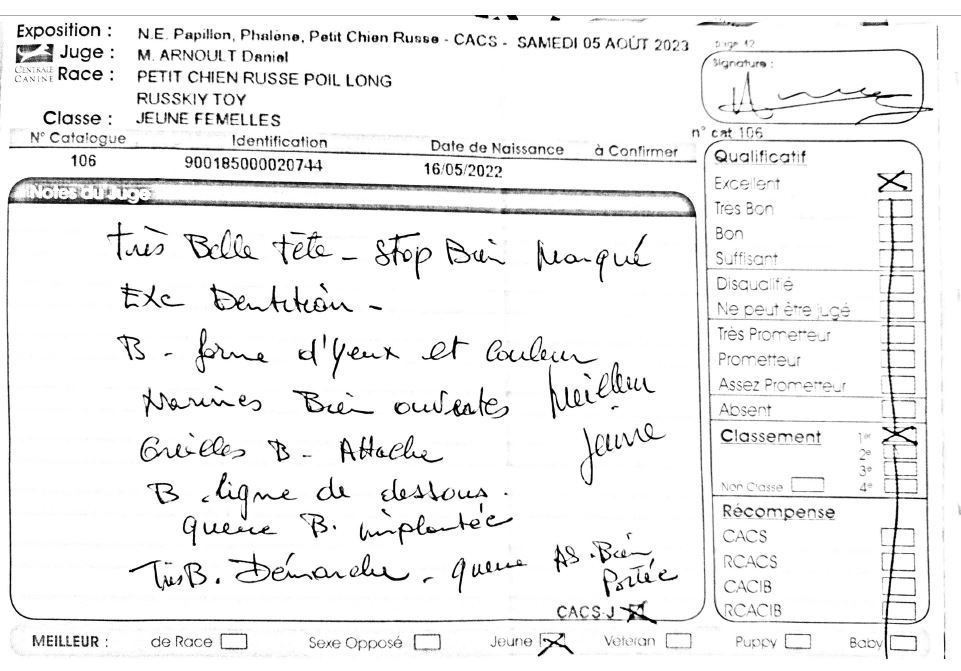 Exposition : N.E. Papillon, Phalène, Petit Chien Russe - CACS - SAMEDI 05 AOÛT 2023
page 12
Juge : M. ARNOULT Daniel
Signature :
CENTRALE CANINE
Race : PETIT CHIEN RUSSE POIL LONG
RUSSKIY TOY
Classe : JEUNE FEMELLES
n° cat 106
N° Catalogue Identification Date de Naissance à Confirmer
106 900185000020744 16/05/2022
Notes du Juge
Très Belle Tête - Stop Bien Marqué
Exc Dentition -
B - forme d'yeux et couleur
Narines Bien ouvertes
Meilleur
Jeune
Oreilles B - Attache
B . ligne de dessous .
queue B. implantée
Très B. Démarche - queue AS . Bien
Portée
CACS-J
Qualificatif
Excellent
Tres Bon
Bon
Suffisant
Disqualifié
Ne peut être jugé
Très Prometteur
Prometteur
Assez Prometteur
Absent
Classement 1er
2e
3e
Non Classe 4e
Récompense
CACS
RCACS
CACIB
RCACIB
MEILLEUR : de Race Sexe Opposé Jeune Veteran Puppy Baby